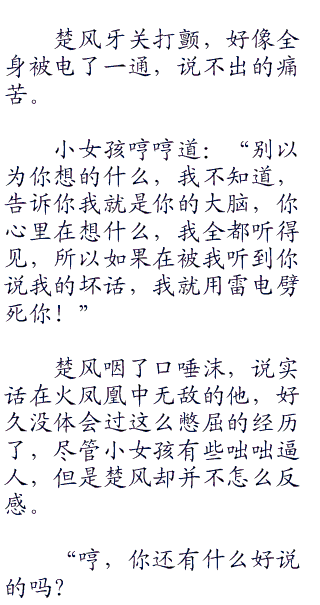 楚风牙关打颤，好像全
身被电了一通，说不出的痛
苦。
小女孩哼哼道：“别以
为你想的什么，我不知道，
告诉你我就是你的大脑，你
心里在想什么，我全都听得
见，所以如果在被我听到你
说我的坏话，我就用雷电劈
死你！”
楚风咽了口唾沫，说实
话在火凤凰中无敌的他，好
久没体会过这么憋屈的经历
了，尽管小女孩有些咄咄逼
人，但是楚风却并不怎么反
感。
“哼，你还有什么好说
的吗？